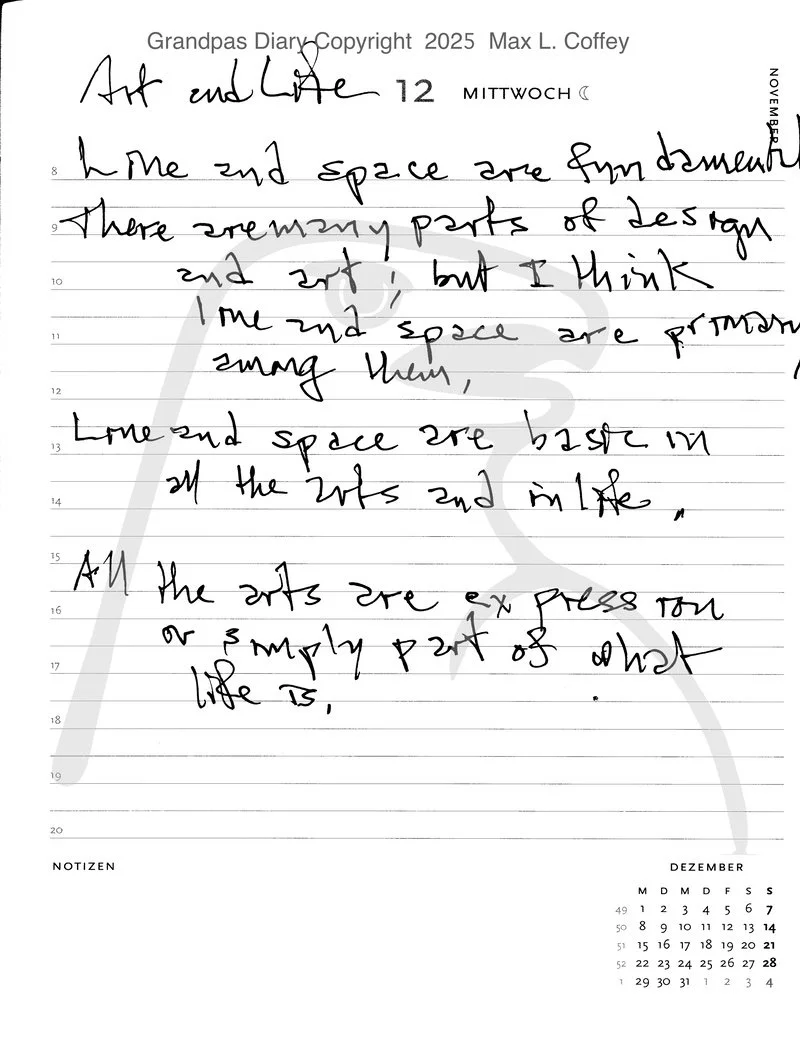 Grandpas Diary Copyright 2025 Max L. Coffey
Art and Life 12 MITTWOCH
NOVEMBER
8 Line and space are fundamental
9 There are many parts of design
10 and art, but I think
11 line and space are primary
among them,
12
13 Line and space are basic in
14 all the arts and in life.
15 All the arts are expression
16 or simply part of what
17 life is,
18
19
20
NOTIZEN
DEZEMBER
M D M D F S S
49 1 2 3 4 5 6 7
50 8 9 10 11 12 13 14
51 15 16 17 18 19 20 21
52 22 23 24 25 26 27 28
1 29 30 31 1 2 3 4